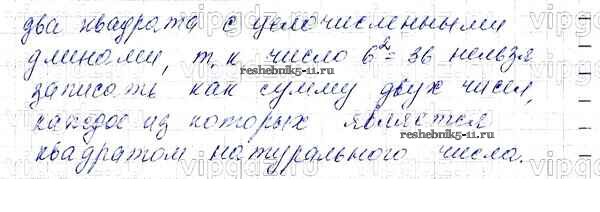 два квадрата с целочисленными
длинами, т.к. число 6²= 36 нельзя
reshebnik5-11.ru
записать как сумму двух чисел,
каждое из которых является
reshebnik5-11.ru
квадратом натурального числа.